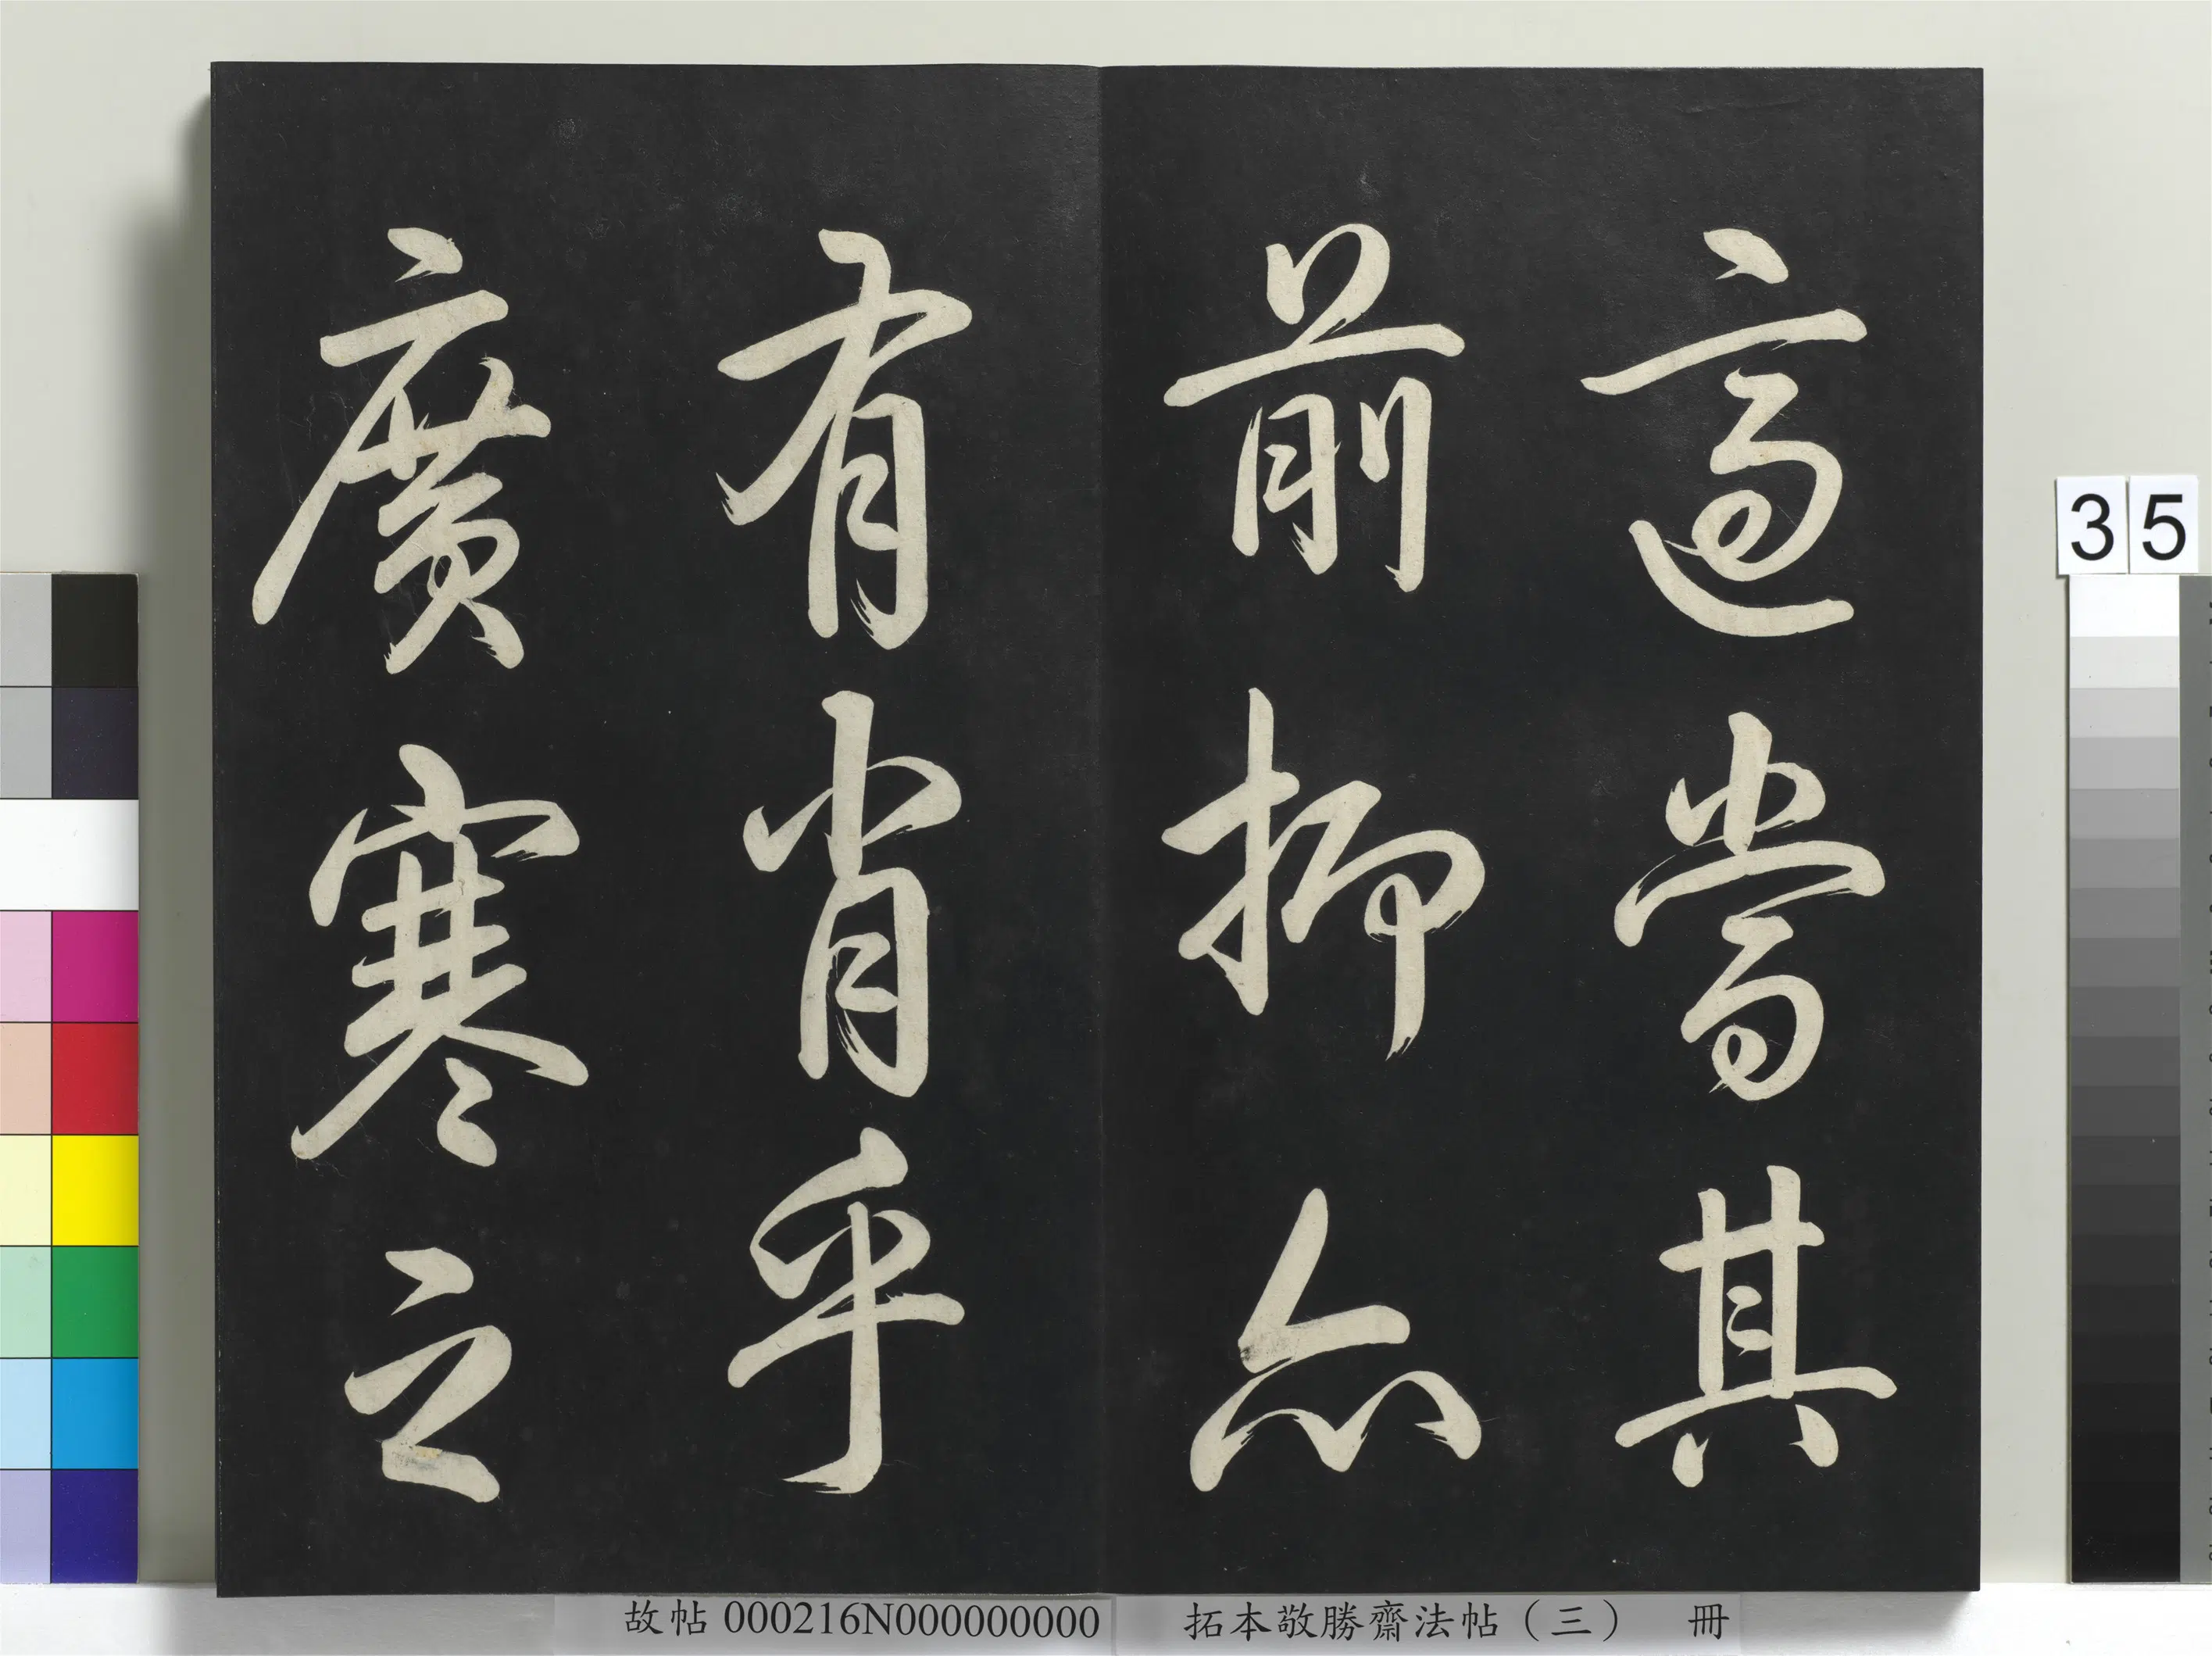 適當其
前抑亦
有肖乎
廣寒之
35
故帖000216N000000000
拓本敬勝齋法帖（三） 冊